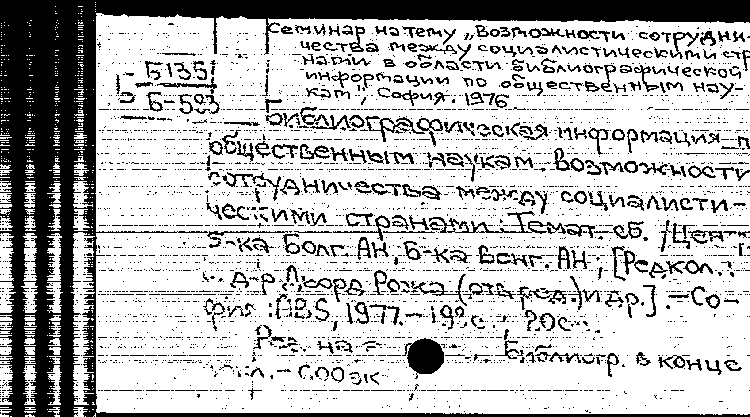 Семинар на тему „Возможности сотрудни-
чества между социалистическими стр
нами в области библиографической
информации по общественным нау-
кам", София. 1976
Б 135
Б-583
Библиографическая информация п
общественным наукам. Возможности
сотрудничества между социалисти-
ческими странами: Темат. сб. /Цен
б-ка Болг. АН, Б-ка Венг. АН; [Редкол.:
д-р Дьорд Рожа (отв. ред.) и др.]. - Со-
фия: ABS, 1977. -
Рез. на
Библиогр. в конце